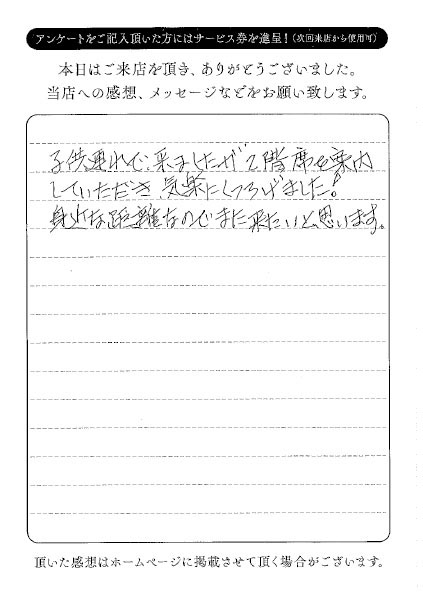 アンケートをご記入頂いた方にはサービス券を進呈！（次回来店から使用可）
本日はご来店を頂き、ありがとうございました。
当店への感想、メッセージなどをお願い致します。
子供連れで、来ましたが2階席を案内
していただき気楽にくつろげました！
身近な距離なのでまた来たいと思います。
頂いた感想はホームページに掲載させて頂く場合がございます。